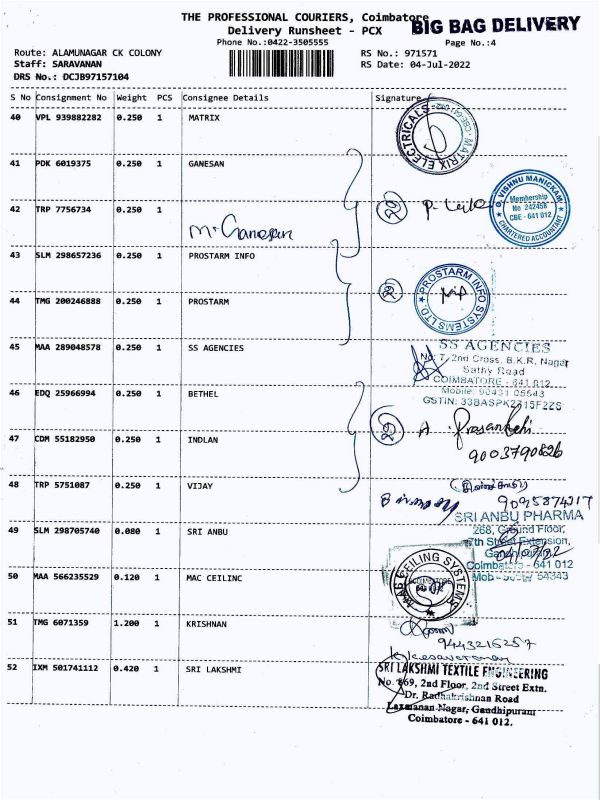 THE PROFESSIONAL COURIERS, Coimbatore
BIG BAG DELIVERY
Delivery Runsheet - PCX
Phone No.:0422-3505555
Page No.:4
Route: ALAMUNAGAR CK COLONY
RS No.: 971571
Staff: SARAVANAN
RS Date: 04-Jul-2022
DRS No.: DCJB97157104
S No Consignment No Weight PCS Consignee Details Signature
40 VPL 939882282 0.250 1 MATRIX
MATRIX ELECTRICALS
CBE-641 012
41 PDK 6019375 0.250 1 GANESAN
G. VISHNU MANICKAM
Membership
No 242458
CBE - 641 012
CHARTERED ACCOUNTANT
42 TRP 7756734 0.250 1
Mr Ganesan
②
43 SLM 298657236 0.250 1 PROSTARM INFO
PROSTARM INFO SYSTEMS LTD
②
44 TMG 200246888 0.250 1 PROSTARM
45 MAA 289048578 0.250 1 SS AGENCIES
SS AGENCIES
No: 7, 2nd Cross, B.K.R. Nagar
Sathy Road
COIMBATORE - 641 012
Mobile: 90431 05643
GSTIN:
46 EDQ 25966994 0.250 1 BETHEL
② A.
47 CDM 55182950 0.250 1 INDLAN
9003790826
48 TRP 5751087 0.250 1 VIJAY
9095874217
49 SLM 298705740 0.080 1 SRI ANBU
SRI ANBU PHARMA
268, Ground Floor,
7th Street Extension,
Coimbatore - 641 012
50 MAA 566235529 0.120 1 MAC CEILINC
CEILING SYSTEMS
51 TMG 6071359 1.200 1 KRISHNAN
9443216257
52 IXM 501741112 0.420 1 SRI LAKSHMI
SRI LAKSHMI TEXTILE ENGINEERING
No. 869, 2nd Floor, 2nd Street Extn.
Dr. Radhakrishnan Road
Laxmanan Nagar, Gandhipuram
Coimbatore - 641 012.